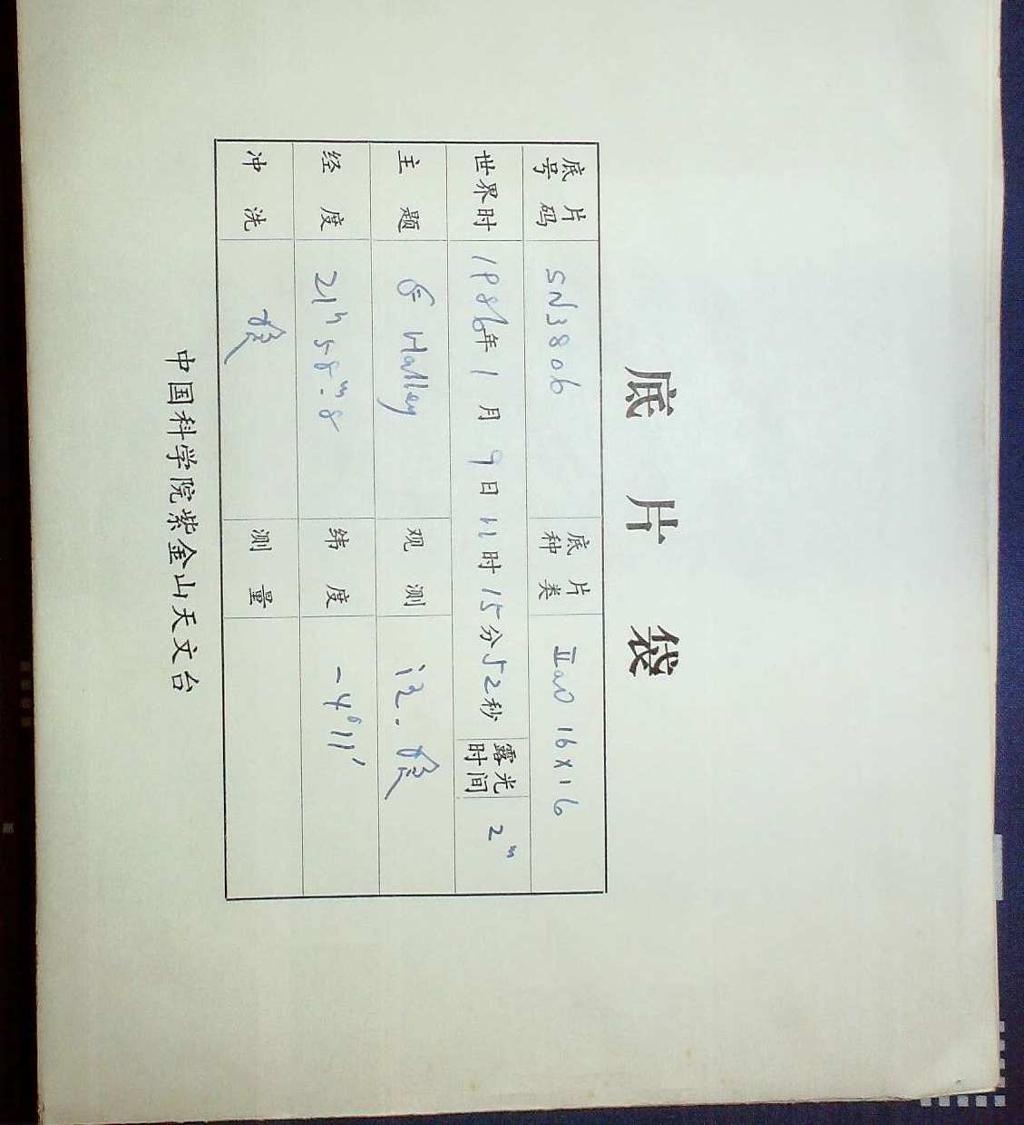 底片袋
底片号码 SN3806 底片种类 IIaO 16×16
世界时 1986年1月9日11时15分52秒 露光时间 2m
主题 Halley 观测
经度 21h58m.8 纬度 -4°11′
冲洗 测量
中国科学院紫金山天文台